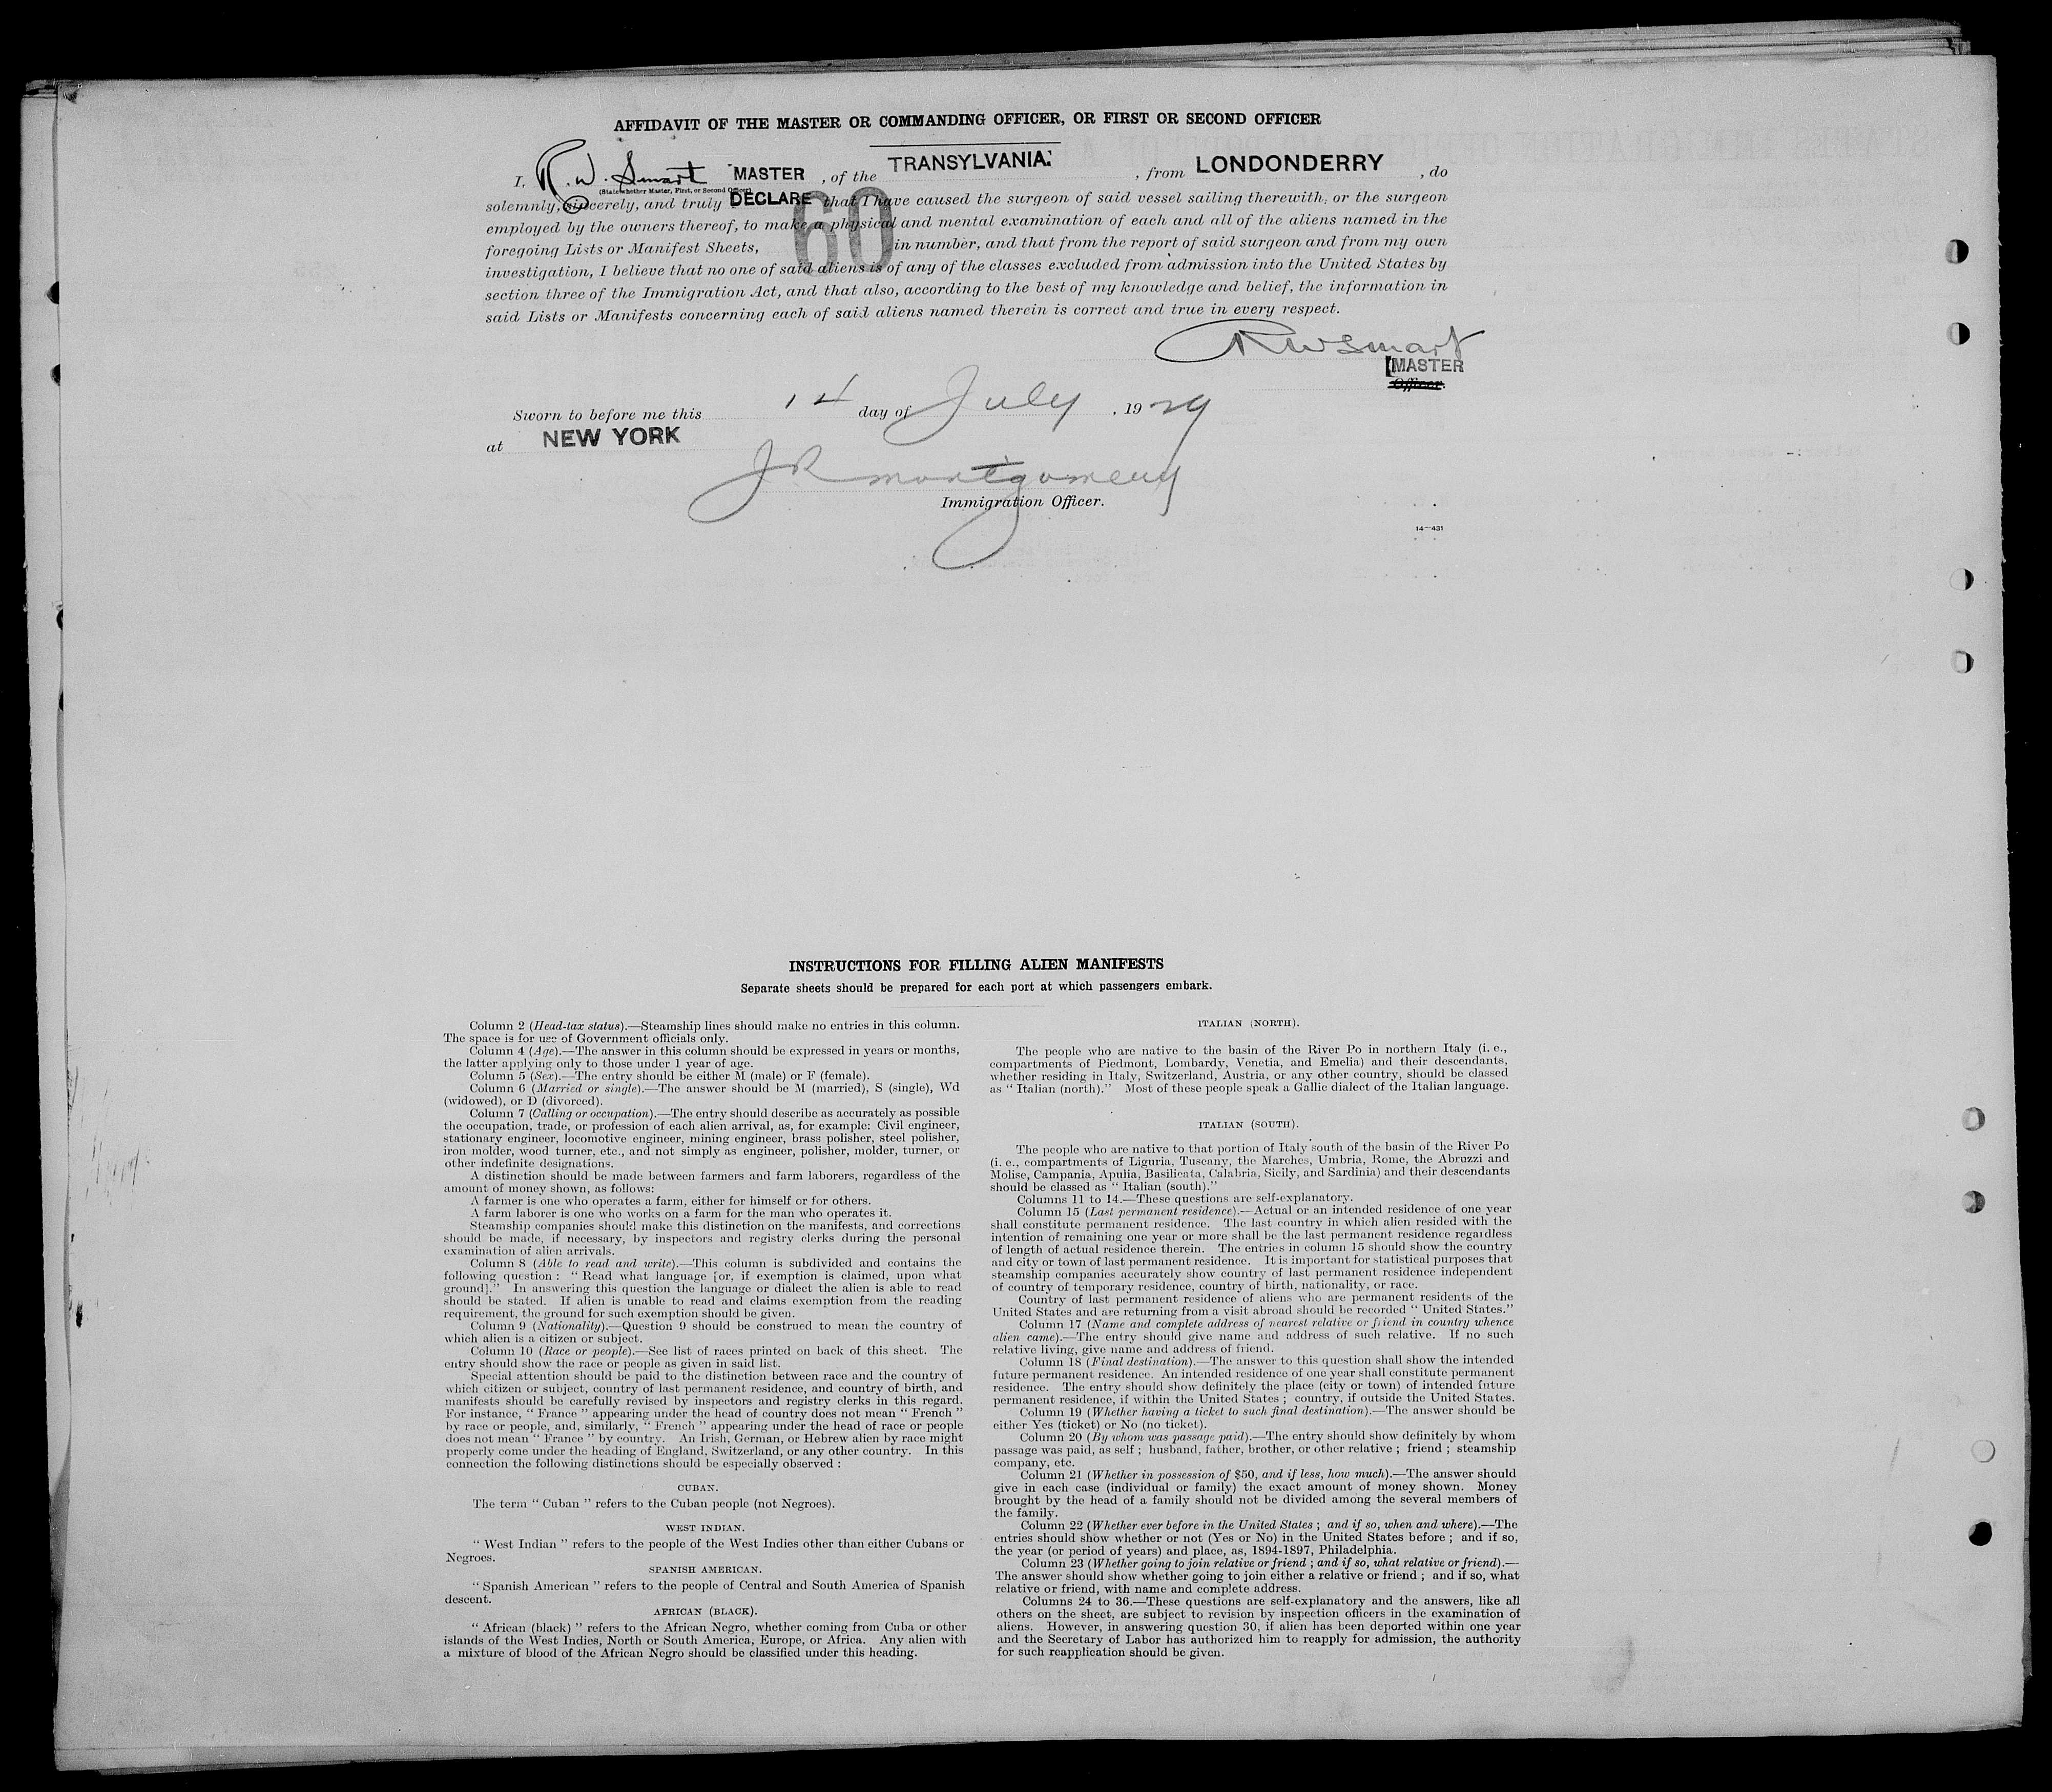 AFFIDAVIT OF THE MASTER OR COMMANDING OFFICER, OR FIRST OR SECOND OFFICER
I, R. W. Smart MASTER , of the TRANSYLVANIA. , from LONDONDERRY , do
(State whether Master, First, or Second Officer)
solemnly, sincerely, and truly DECLARE that I have caused the surgeon of said vessel sailing therewith, or the surgeon
employed by the owners thereof, to make a physical and mental examination of each and all of the aliens named in the
foregoing Lists or Manifest Sheets, 60 in number, and that from the report of said surgeon and from my own
investigation, I believe that no one of said aliens is of any of the classes excluded from admission into the United States by
section three of the Immigration Act, and that also, according to the best of my knowledge and belief, the information in
said Lists or Manifests concerning each of said aliens named therein is correct and true in every respect.
R W Smart
MASTER
Officer.
Sworn to before me this 14 day of July , 1929
at NEW YORK
J R Montgomery
Immigration Officer.
14—431
INSTRUCTIONS FOR FILLING ALIEN MANIFESTS
Separate sheets should be prepared for each port at which passengers embark.
Column 2 (Head-tax status).—Steamship lines should make no entries in this column.
The space is for use of Government officials only.
Column 4 (Age).—The answer in this column should be expressed in years or months,
the latter applying only to those under 1 year of age.
Column 5 (Sex).—The entry should be either M (male) or F (female).
Column 6 (Married or single).—The answer should be M (married), S (single), Wd
(widowed), or D (divorced).
Column 7 (Calling or occupation).—The entry should describe as accurately as possible
the occupation, trade, or profession of each alien arrival, as, for example: Civil engineer,
stationary engineer, locomotive engineer, mining engineer, brass polisher, steel polisher,
iron molder, wood turner, etc., and not simply as engineer, polisher, molder, turner, or
other indefinite designations.
A distinction should be made between farmers and farm laborers, regardless of the
amount of money shown, as follows:
A farmer is one who operates a farm, either for himself or for others.
A farm laborer is one who works on a farm for the man who operates it.
Steamship companies should make this distinction on the manifests, and corrections
should be made, if necessary, by inspectors and registry clerks during the personal
examination of alien arrivals.
Column 8 (Able to read and write).—This column is subdivided and contains the
following question : “ Read what language [or, if exemption is claimed, upon what
ground].” In answering this question the language or dialect the alien is able to read
should be stated. If alien is unable to read and claims exemption from the reading
requirement, the ground for such exemption should be given.
Column 9 (Nationality).—Question 9 should be construed to mean the country of
which alien is a citizen or subject.
Column 10 (Race or people).—See list of races printed on back of this sheet. The
entry should show the race or people as given in said list.
Special attention should be paid to the distinction between race and the country of
which citizen or subject, country of last permanent residence, and country of birth, and
manifests should be carefully revised by inspectors and registry clerks in this regard.
For instance, “ France ” appearing under the head of country does not mean “ French ”
by race or people, and, similarly, “ French ” appearing under the head of race or people
does not mean “ France ” by country. An Irish, German, or Hebrew alien by race might
properly come under the heading of England, Switzerland, or any other country. In this
connection the following distinctions should be especially observed :
CUBAN.
The term “ Cuban ” refers to the Cuban people (not Negroes).
WEST INDIAN.
“ West Indian ” refers to the people of the West Indies other than either Cubans or
Negroes.
SPANISH AMERICAN.
“ Spanish American ” refers to the people of Central and South America of Spanish
descent.
AFRICAN (BLACK).
“ African (black) ” refers to the African Negro, whether coming from Cuba or other
islands of the West Indies, North or South America, Europe, or Africa. Any alien with
a mixture of blood of the African Negro should be classified under this heading.
ITALIAN (NORTH).
The people who are native to the basin of the River Po in northern Italy (i. e.,
compartments of Piedmont, Lombardy, Venetia, and Emelia) and their descendants,
whether residing in Italy, Switzerland, Austria, or any other country, should be classed
as “ Italian (north).” Most of these people speak a Gallic dialect of the Italian language.
ITALIAN (SOUTH).
The people who are native to that portion of Italy south of the basin of the River Po
(i. e., compartments of Liguria, Tuscany, the Marches, Umbria, Rome, the Abruzzi and
Molise, Campania, Apulia, Basilicata, Calabria, Sicily, and Sardinia) and their descendants
should be classed as “ Italian (south).”
Columns 11 to 14.—These questions are self-explanatory.
Column 15 (Last permanent residence).—Actual or an intended residence of one year
shall constitute permanent residence. The last country in which alien resided with the
intention of remaining one year or more shall be the last permanent residence regardless
of length of actual residence therein. The entries in column 15 should show the country
and city or town of last permanent residence. It is important for statistical purposes that
steamship companies accurately show country of last permanent residence independent
of country of temporary residence, country of birth, nationality, or race.
Country of last permanent residence of aliens who are permanent residents of the
United States and are returning from a visit abroad should be recorded “ United States.”
Column 17 (Name and complete address of nearest relative or friend in country whence
alien came).—The entry should give name and address of such relative. If no such
relative living, give name and address of friend.
Column 18 (Final destination).—The answer to this question shall show the intended
future permanent residence. An intended residence of one year shall constitute permanent
residence. The entry should show definitely the place (city or town) of intended future
permanent residence, if within the United States ; country, if outside the United States.
Column 19 (Whether having a ticket to such final destination).—The answer should be
either Yes (ticket) or No (no ticket).
Column 20 (By whom was passage paid).—The entry should show definitely by whom
passage was paid, as self ; husband, father, brother, or other relative ; friend ; steamship
company, etc.
Column 21 (Whether in possession of $50, and if less, how much).—The answer should
give in each case (individual or family) the exact amount of money shown. Money
brought by the head of a family should not be divided among the several members of
the family.
Column 22 (Whether ever before in the United States ; and if so, when and where).—The
entries should show whether or not (Yes or No) in the United States before ; and if so,
the year (or period of years) and place, as, 1894-1897, Philadelphia.
Column 23 (Whether going to join relative or friend ; and if so, what relative or friend).—
The answer should show whether going to join either a relative or friend ; and if so, what
relative or friend, with name and complete address.
Columns 24 to 36.—These questions are self-explanatory and the answers, like all
others on the sheet, are subject to revision by inspection officers in the examination of
aliens. However, in answering question 30, if alien has been deported within one year
and the Secretary of Labor has authorized him to reapply for admission, the authority
for such reapplication should be given.